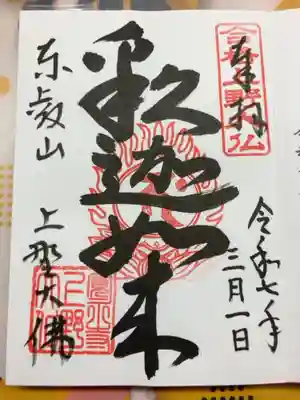 奉拝
令和七年
三月一日
釈迦如来
東叡山
上野大佛